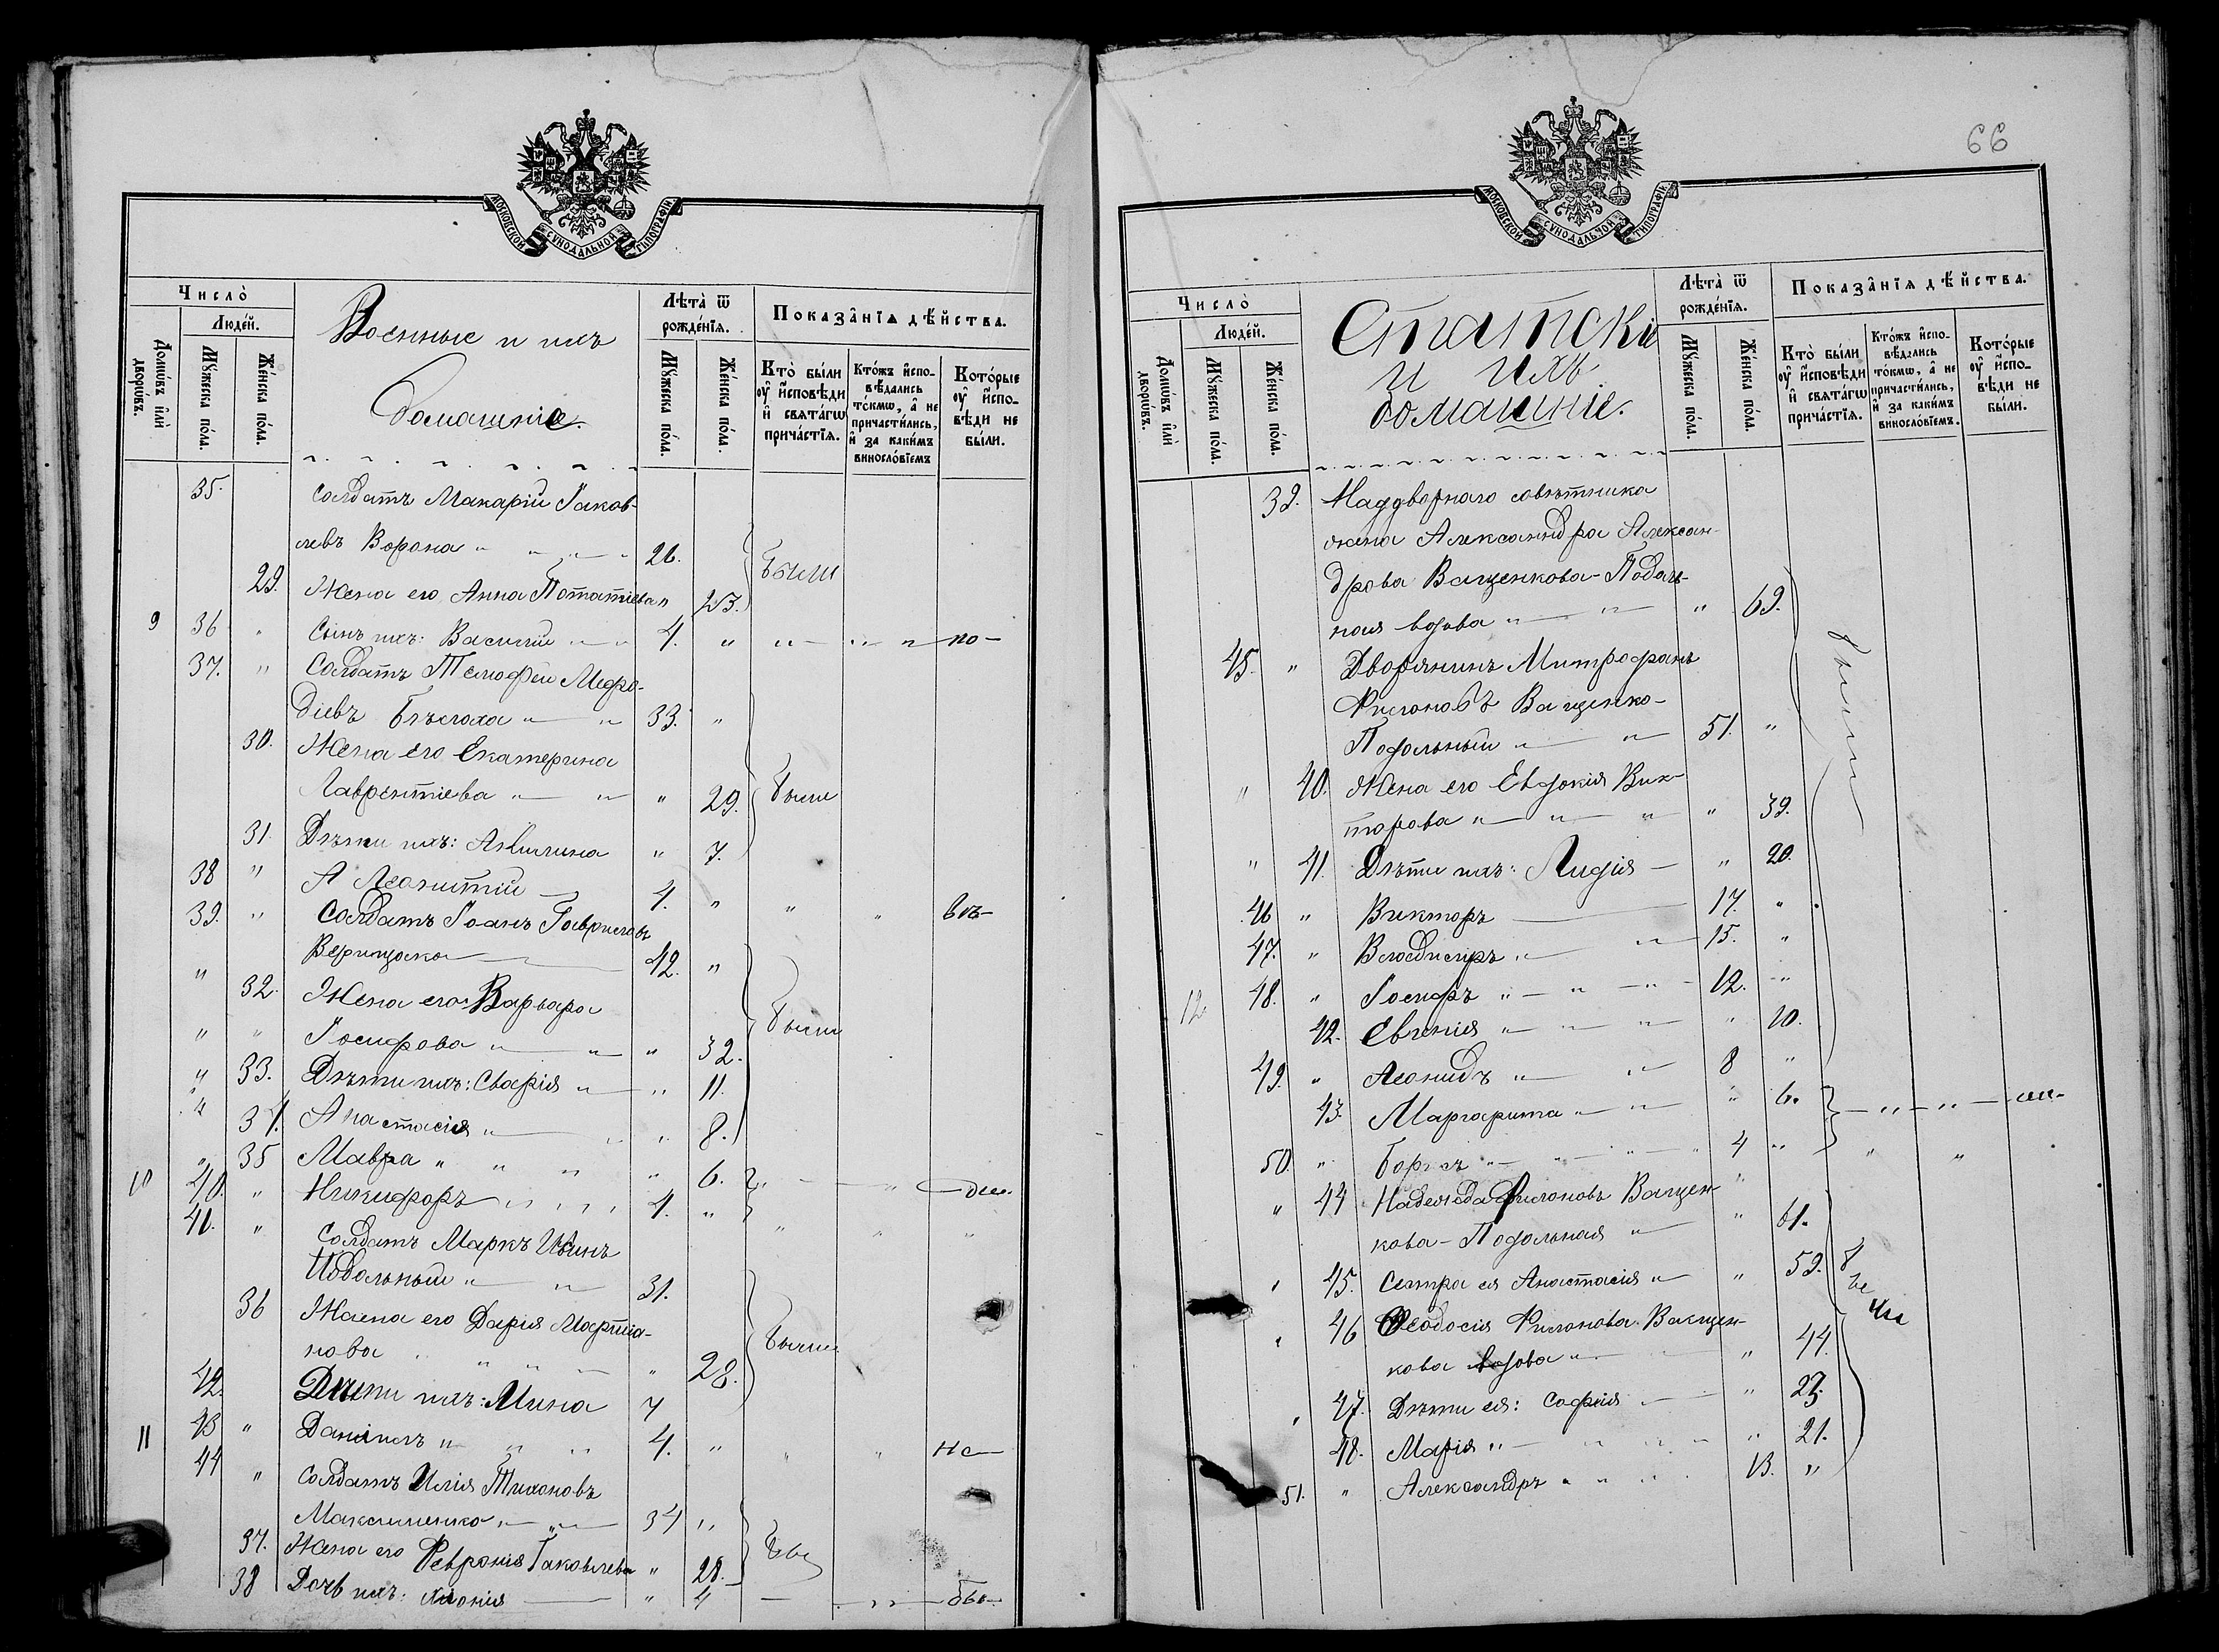 МОСКОВСКОЙ СѴНОДАЛЬНОЙ ТИПОГРАФІИ
Число̀
Людей.
Домѡвъ и҆лѝ дворѡвъ.
Мꙋ́жеска по́ла.
Же́нска по́ла.
Военные и ихъ
домашніе.
Лѣта̀ ѿ рожде́нїѧ.
Мꙋ́жеска по́ла.
Же́нска по́ла.
Показа̑нїѧ дѣ́йства.
Кто̀ бы́ли ᲂу҆ и҆сповѣди и҆ свѧта́гѡ прича́стїѧ.
Кто́жъ и҆спо-вѣдались то́кмѡ, а҆ не причасти́лись, и҆ за каки́мъ винослóвїемъ
Кото́рые ᲂу҆ и҆спо-вѣди не бы́ли.
35. Солдатъ Макарій Іаков-
левъ Ворона " " " 26.
29. Жена его Анна Потапіева " 23. были
9 36 " Сынъ ихъ: Василій " " 4. " " " " по-
37. " Солдатъ Тимофей Мефо-
діевъ Бѣлоха " " 33. "
30. Жена его Екатерина
Лаврентіева " " " 29. были
31. Дѣти ихъ: Акилина " 7.
38 " А Леонтій 4. " " " въ-
39. " Солдатъ Іоанъ Гавриловъ
" Верищака 42. "
32. Жена его Варвара
" " Іосифова " " " 32. были
" 33. Дѣти ихъ: Сварія " " 11.
" 34. Анастасія " " " 8.
" 35 Мавра " " " " 6. " " дш.
10 40. " Никифоръ " " " 4. "
41. " Солдатъ Маркъ Ивинъ " " "
Подольный " " 31.
36 Жена его Дарія Мартіа-
нова " " " " 28. были
42. Дѣти ихъ: Мина 7
11 43 " Даніилъ " " " 4. " " " не-
44 " Солдатъ Илія Тихоновъ
Максименко " " 34 "
37. Жена его Февронія Іаковлева " 28.
38 Дочь ихъ: Хіонія " 4 — " — бы-
66
МОСКОВСКОЙ СѴНОДАЛЬНОЙ ТИПОГРАФІИ
Число̀
Людей.
Домѡвъ и҆лѝ дворѡвъ.
Мꙋ́жеска по́ла.
Же́нска по́ла.
Статскіе
и ихъ
домашніе.
Лѣта̀ ѿ рожде́нїѧ.
Мꙋ́жеска по́ла.
Же́нска по́ла.
Показа̑нїѧ дѣ́йства.
Кто̀ бы́ли ᲂу҆ и҆сповѣди и҆ свѧта́гѡ прича́стїѧ.
Кто́жъ и҆спо-вѣдались то́кмѡ, а҆ не причасти́лись, и҆ за каки́мъ винослóвїемъ.
Кото́рые ᲂу҆ и҆спо-вѣди не бы́ли.
39. Надворнаго совѣтника
жена Александра Алексан-
дрова Ващенкова-Подоль-
ная вдова " " " 69.
45. " Дворянинъ Митрофанъ
Филоновъ Ващенко-
Подольный " " 51. " были
" 40. Жена его Евдокія Вик-
торова " " " " 39.
" 41. Дѣти ихъ: Лидія — " 20.
46 " Викторъ 17. "
47. " Владиміръ " " 15. "
12. 48. " Іосифъ " " " 12. "
42. Евгенія " " " " 10.
49. " Леонидъ " " 8 "
43. Маргарита " " " 6. — " — " — ми-
50. " Борисъ " " " " 4 " " "
" 44 Надежда Филоновъ Ващен- "
кова-Подольная " " 61.
" 45. Сестра ея Анастасія " " 59. были
" 46 Феодосія Филонова Ващен-
кова вдова " " 44.
" 47. Дѣти ея: Софія " 23.
48. Марія " " " " " 21.
51. " Александръ " " " 13. "